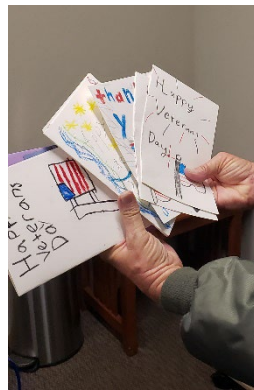 Happy
Veterans
Day!
than
Y
Happy
Veterans
Day